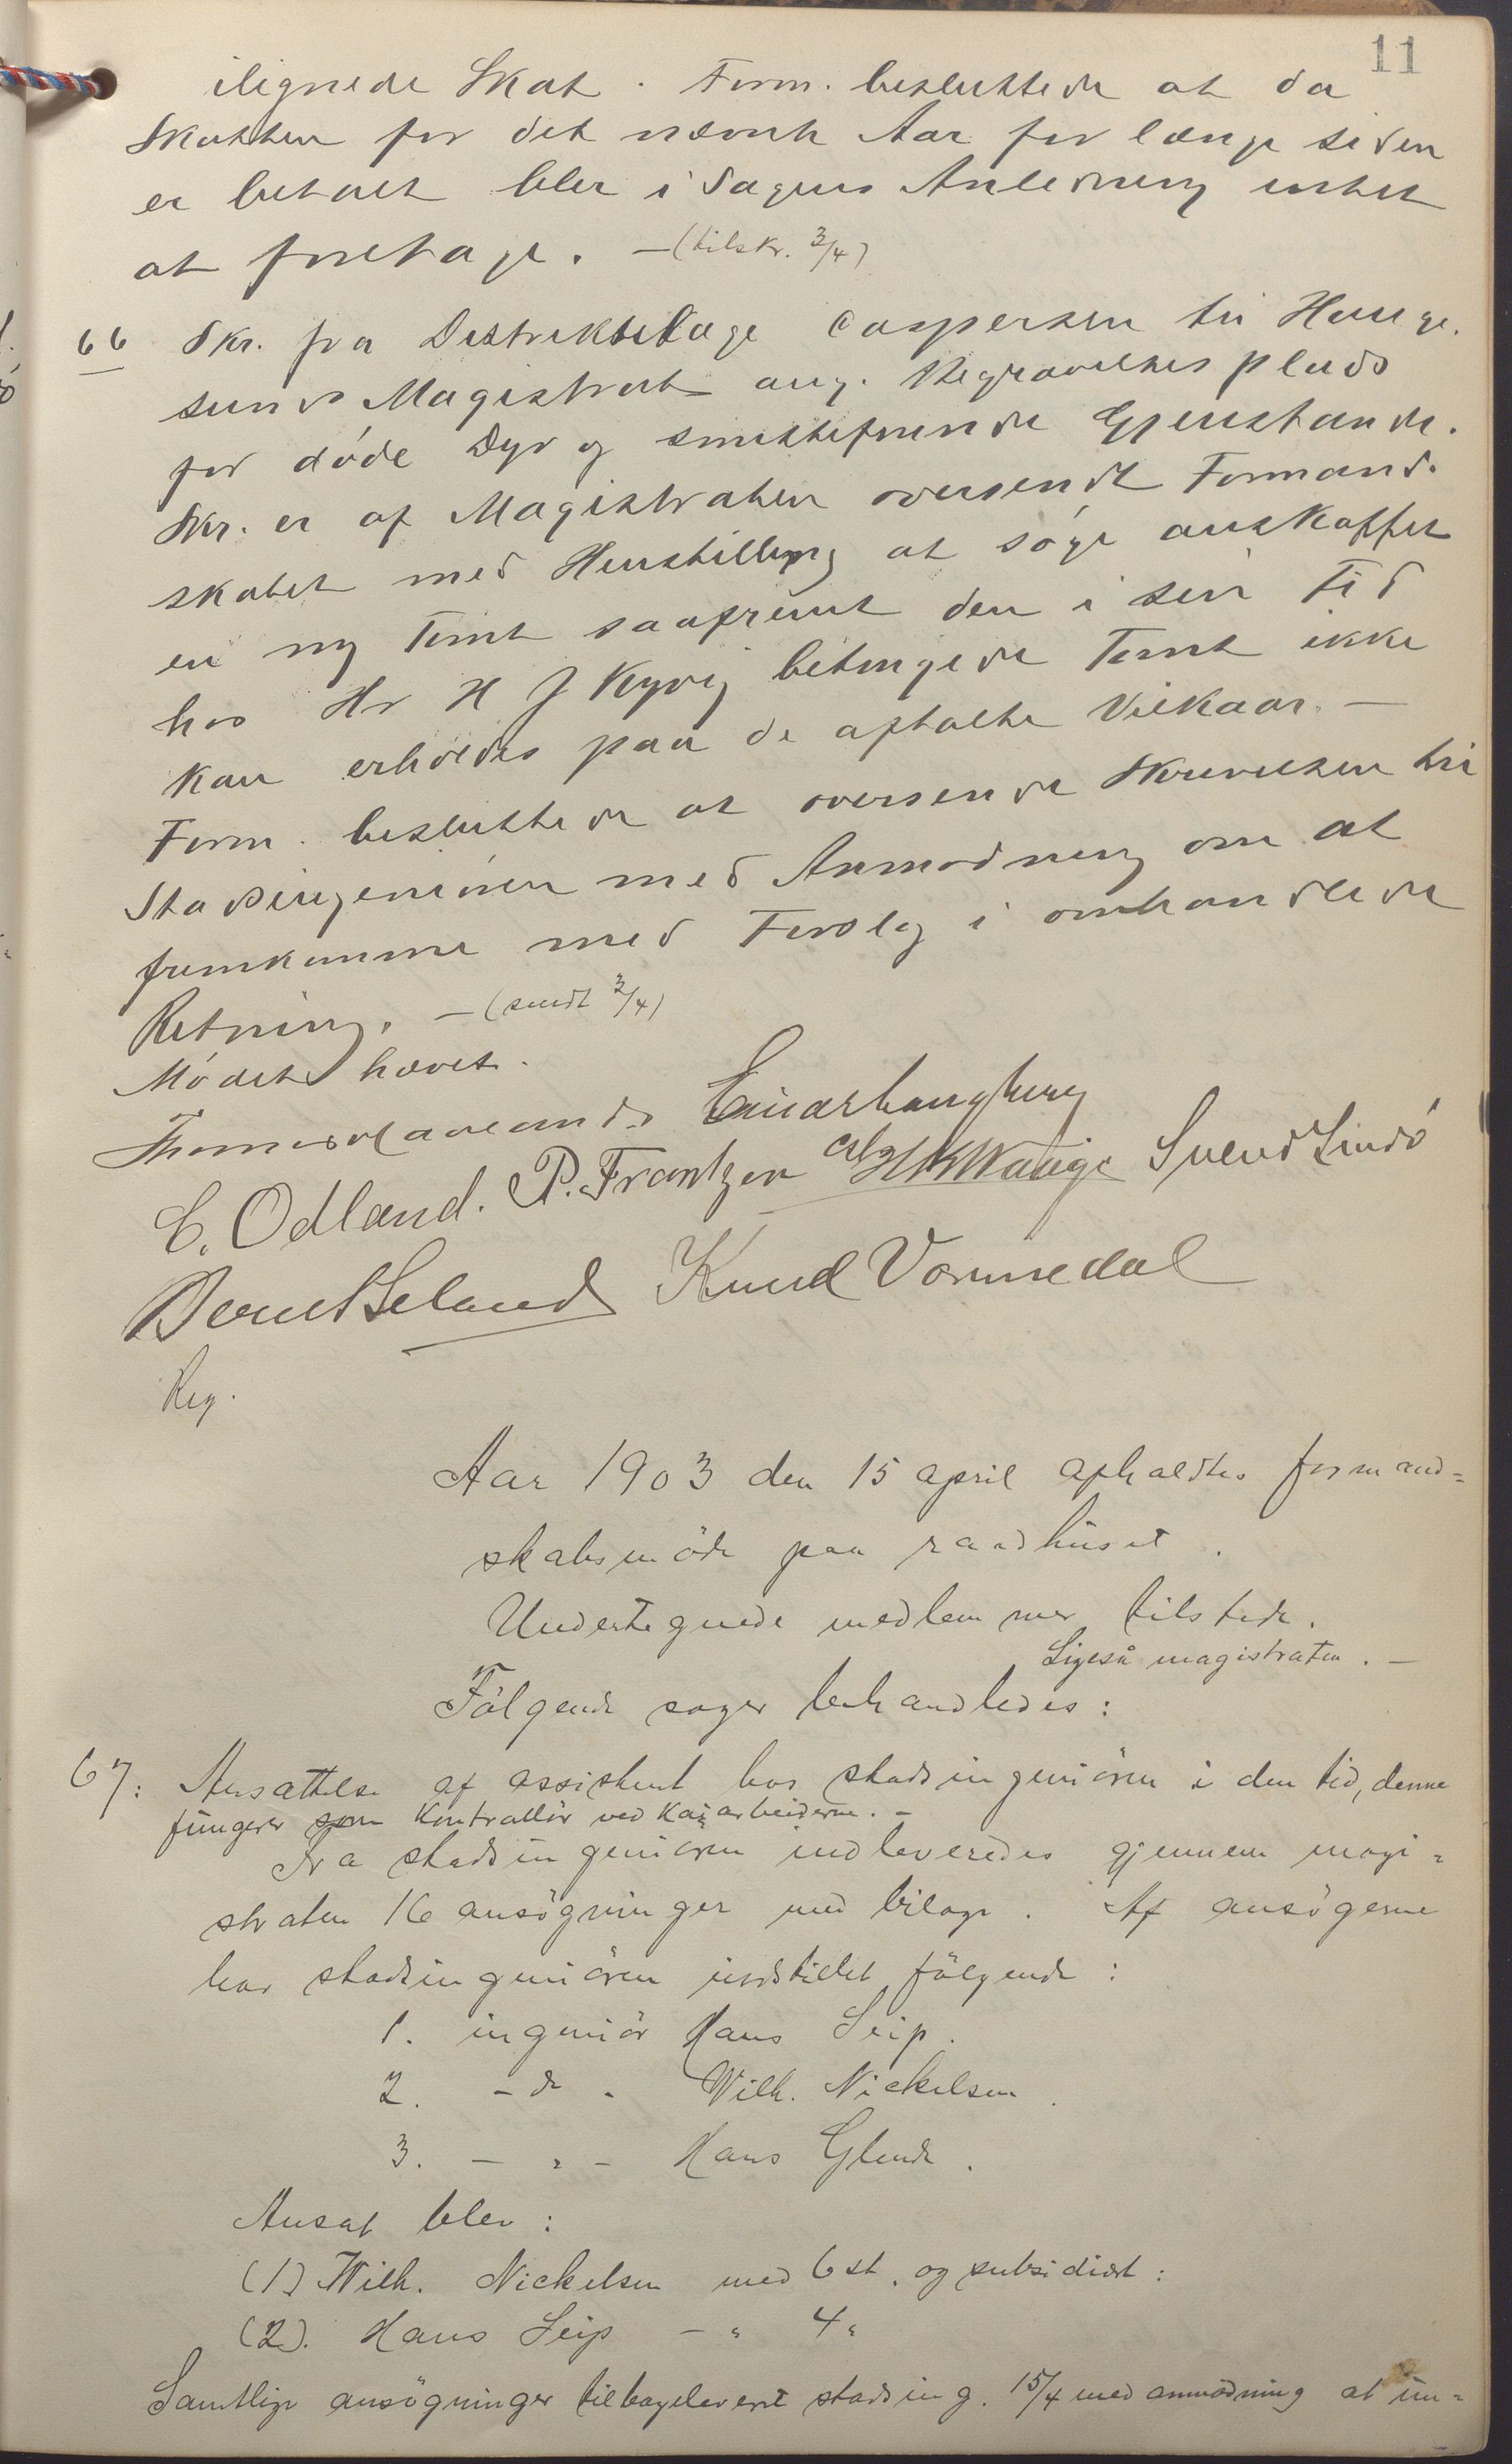 11
ilignede Skat. Form. besluttede at da
Skatten for det nævnte Aar for længe siden
er betalt blev i Sagens Anledning intet
at foretage. — (tilskr. 3/4)
66 Skr. fra Distriktslæge Caspersen til Hauge-
sunds Magistrat ang. Begravelsesplads
for døde Dyr og smitteførende Gjenstande.
Skr. er af Magistraten oversendt Formand-
skabet med Henstilling at søge anskaffet
en ny Tomt saafremt den i sin Tid
hos Hr H J Kyvig betingede Tomt ikke
kan erholdes paa de aftalte Vilkaar. —
Form. besluttede at oversende Skrivelsen til
Stadsingeniøren med Anmodning om at
fremkomme med Forslag i omhandlede
Retning. — (sendt 3/4)
Mødet hævet.
Thomas Haaland Einar Haugberg
E. Odland. P. Frantzen Svend Lindø
Bernt Seland Knud Vormedal
Reg.
Aar 1903 den 15 april afholdtes formand=
skabsmöde paa raadhuset.
Undertegnede medlemmer tilstede.
Ligeså magistraten. —
Fölgende sager behandledes:
67: Ansættelse af assistent hos stadsingeniören i den tid, denne
fungerer som kontrollör ved kaiarbeiderne. —
Fra stadsingeniören indleveredes gjennem magi=
straten 16 ansögninger med bilage. Af ansögerne
har stadsingeniören indstillet fölgende:
1. ingeniör Hans Seip.
2. - do - Wilh. Nickelsen.
3. - " - Hans Glende.
Ansat blev:
(1) Wilh. Nickelsen med 6 st. og subsidiært:
(2). Hans Seip - " 4 "
Samtlige ansögninger tilbageleveret stadsing. 15/4 med anmodning at un=